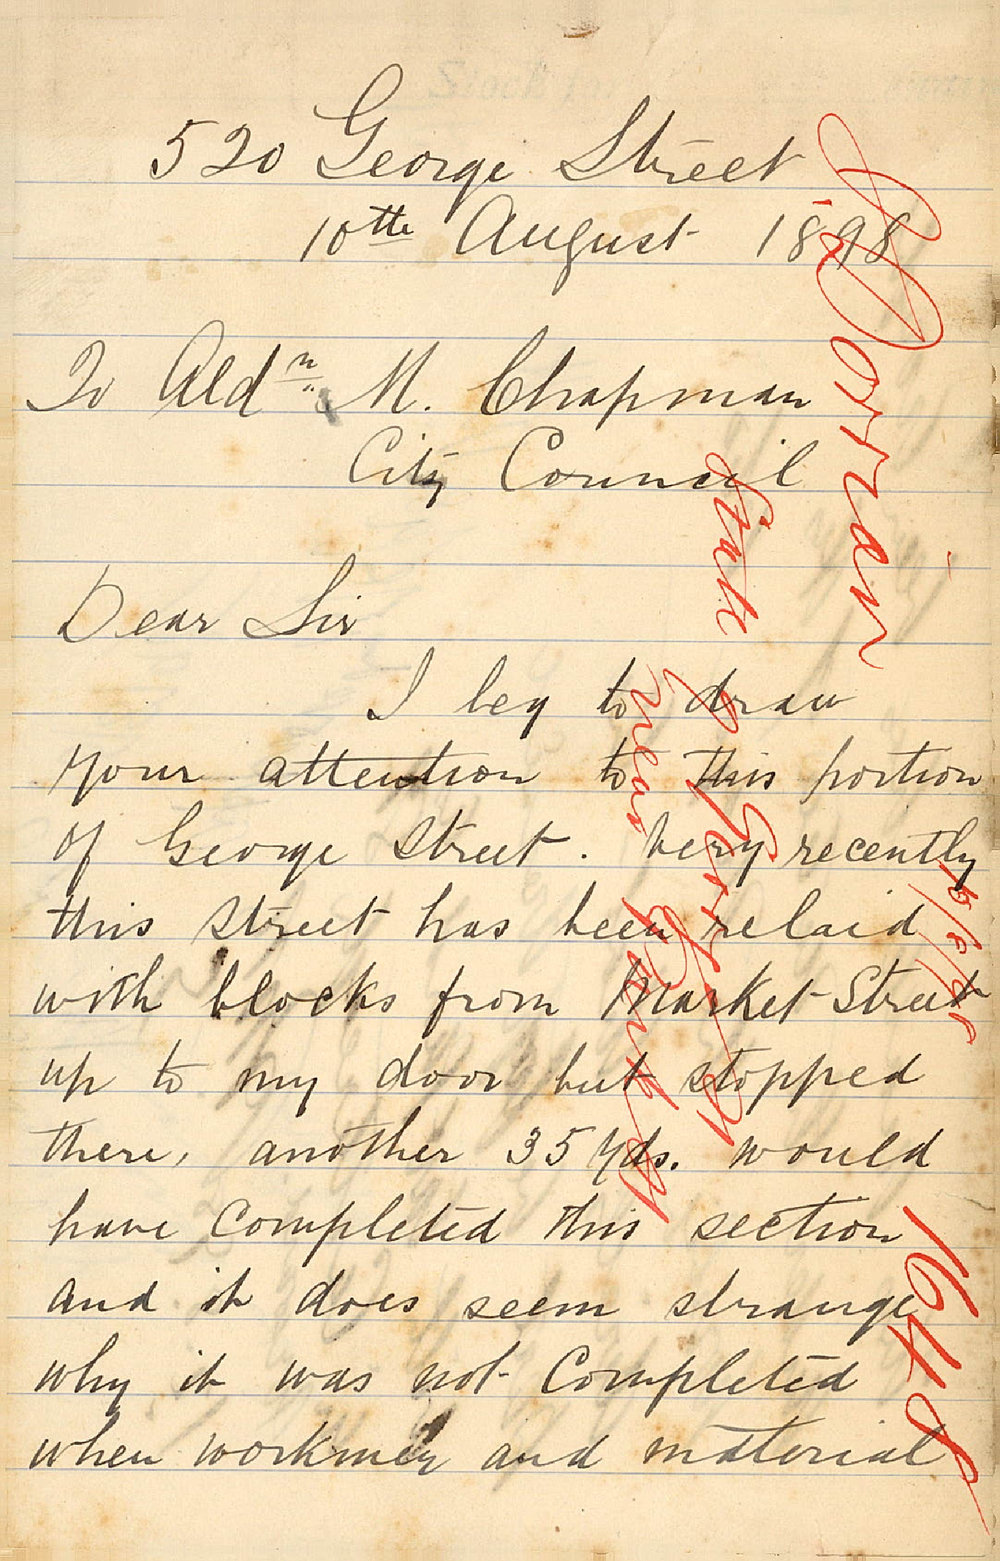 520 George Street
10th August 1898
To Aldn M. Chapman
City Council
Dear Sir
I beg to draw
your attention to this portion
of George Street. Very recently
this street has been relaid
with blocks from Market Street
up to my door but stopped
there, another 35 yds. would
have completed this section
and it does seem strange
why it was not completed
when workmen and material
Dorrain
State
George St
near Park St
15/8/98
1648